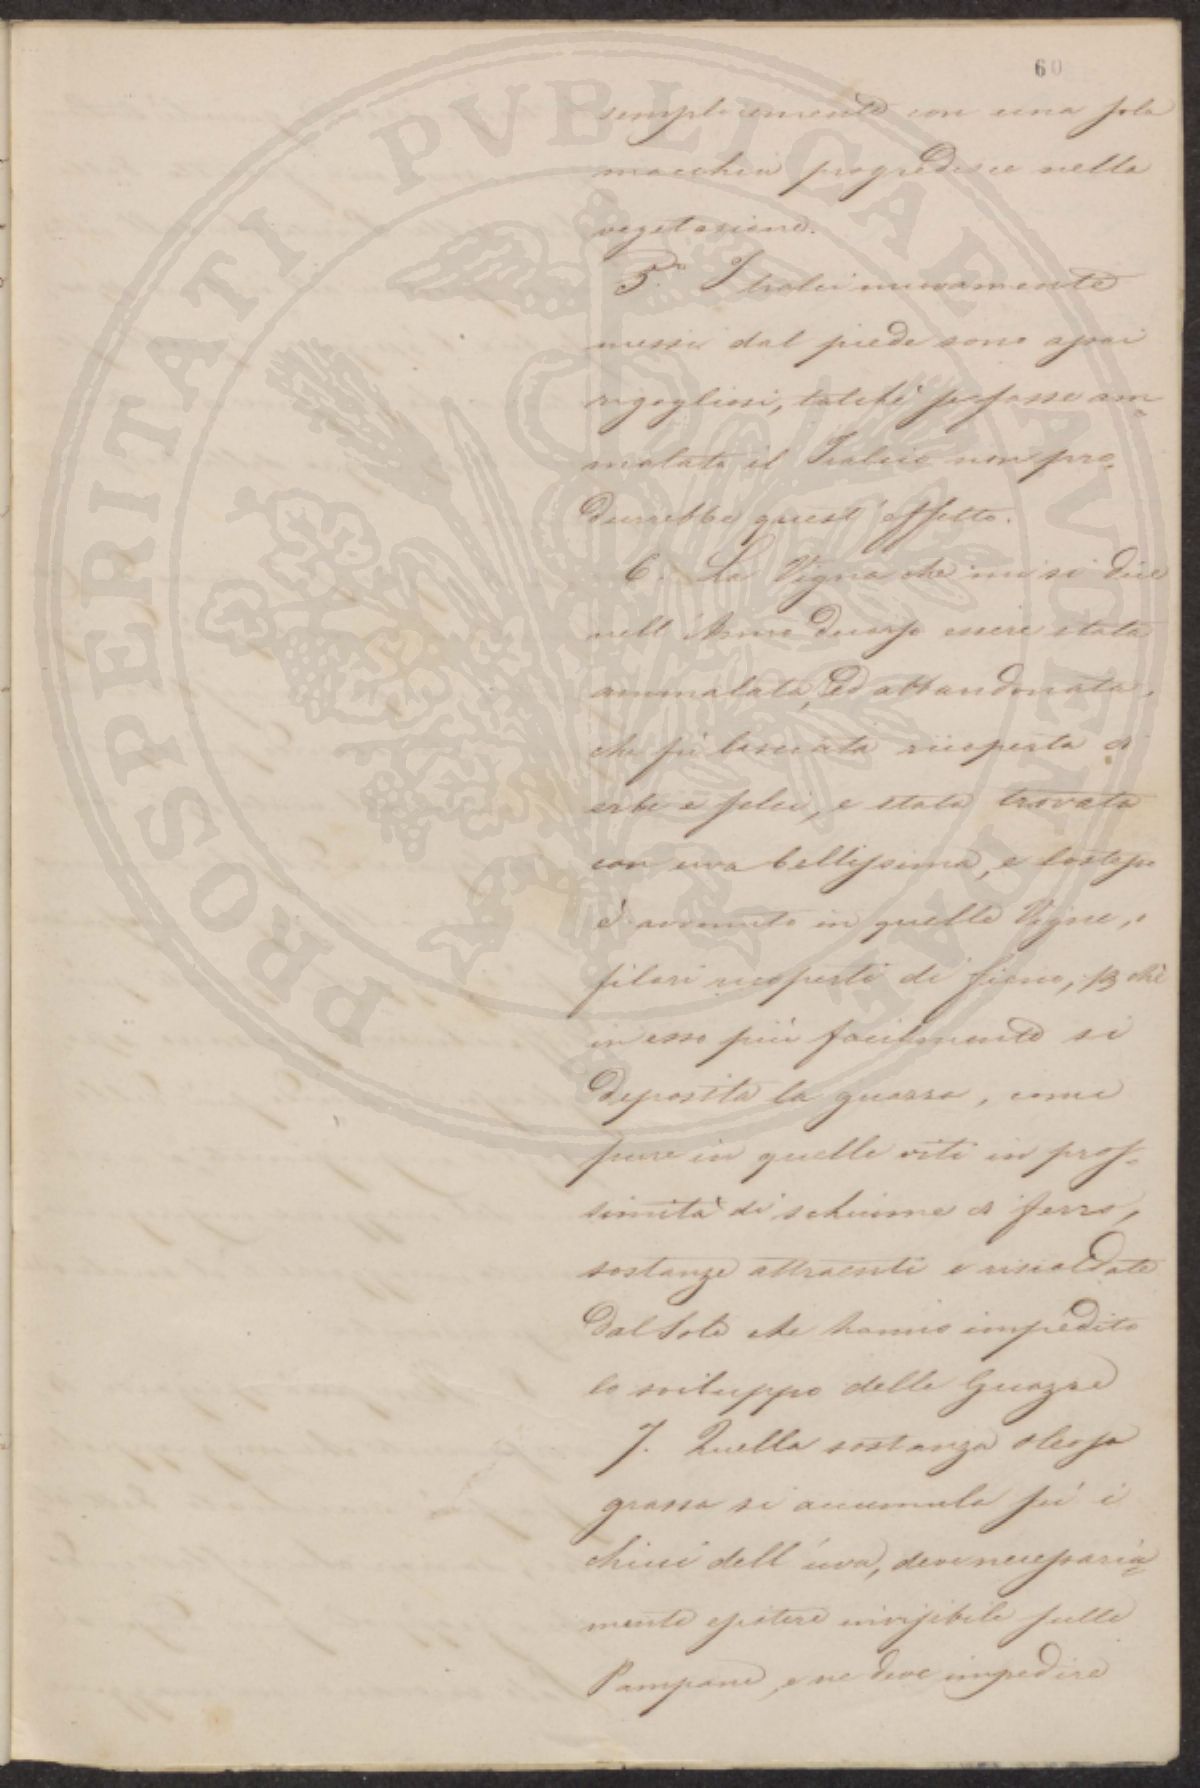 60
semplicemente con una sola
macchia progredisce nella
vegetazione.
5.° I tralci nuovamente
messi dal piede sono assai
rigogliosi, talchè se fosse am=
malato il Tralcio non pro=
durrebbe quest'effetto.
6. La Vigna che mi si dice
nell'Anno decorso essere stata
ammalata, ed abbandonata,
che fù lasciata ricoperta di
erbe e felci, e stata trovata
con uva bellissima, e lo stesso
è avvenuto in quelle Vigne, o
filari ricoperti di fieno, p chè
in esso più facilmente si
deposita la guazza, come
pure in quelle viti in pros=
simità di schiume di ferro,
sostanze attraenti e riscaldate
dal Sole che hanno impedito
lo sviluppo delle Guazze
7. Quella sostanza oleosa
grassa si accumula sù i
chicci dell'uva, deve necessaria=
mente esistere invisibile sulle
Pampane, e ne deve impedire
PROSPERITATI PVBLICAE AVGENDAE